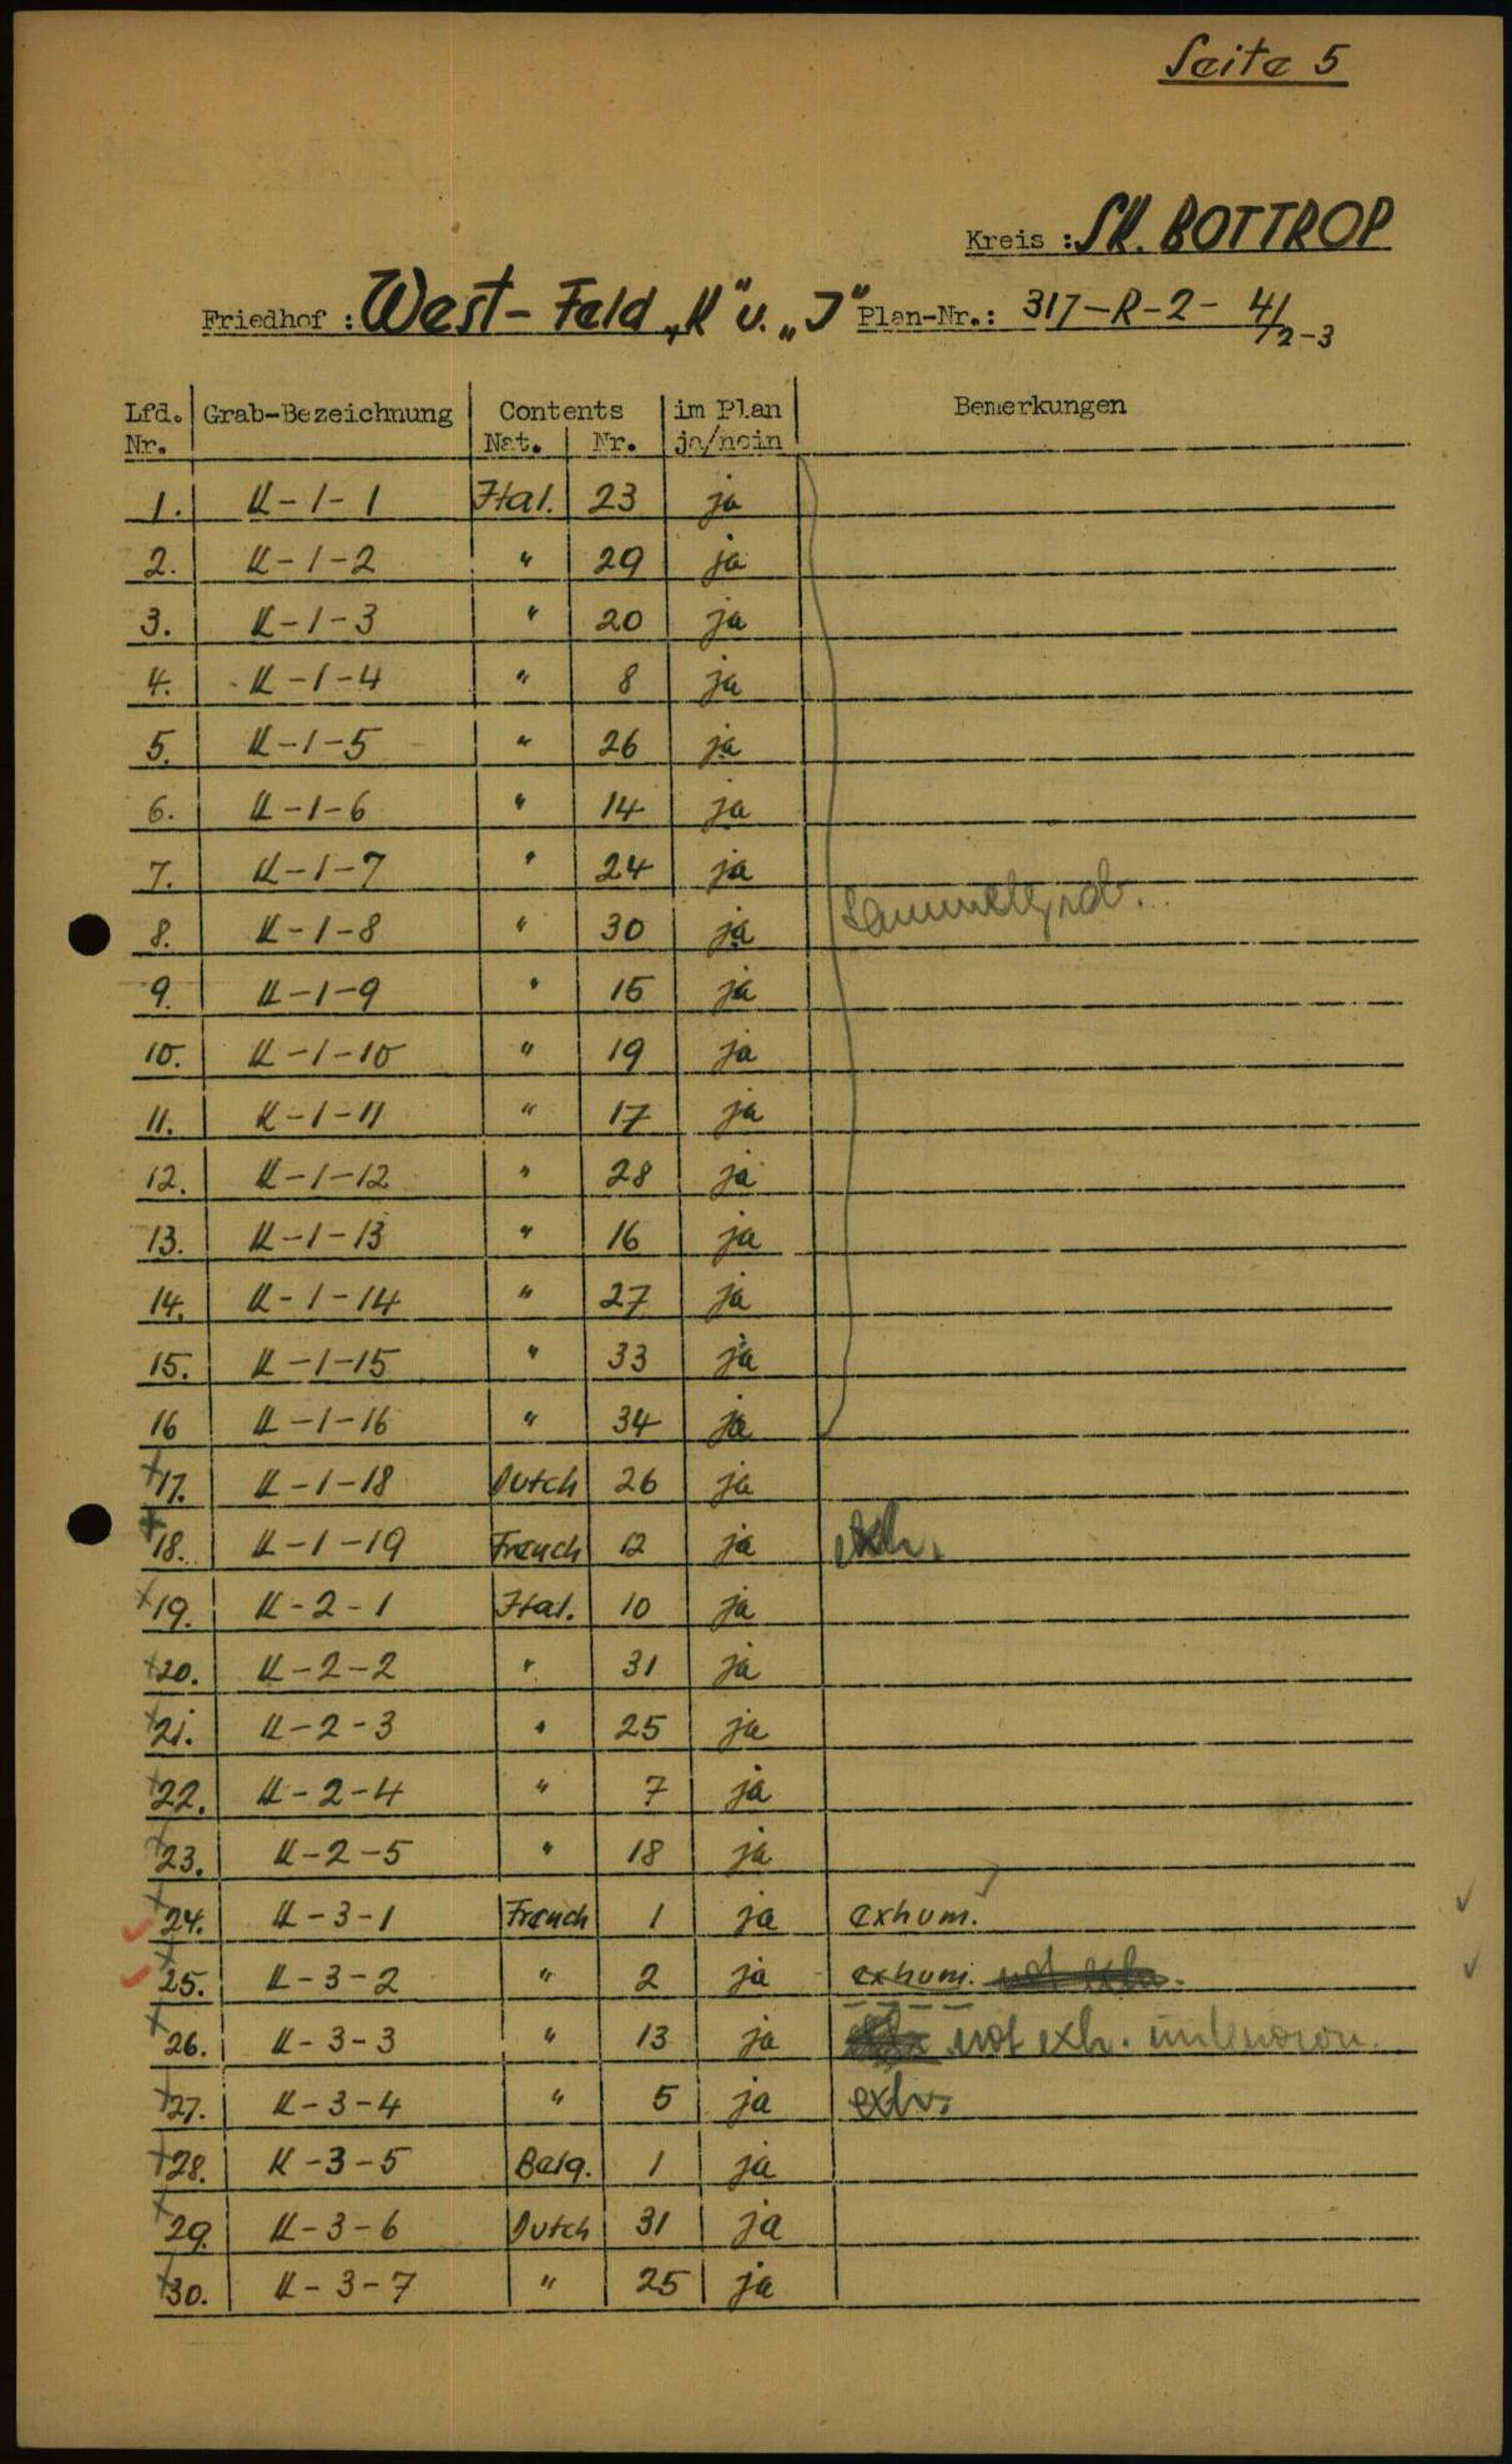 Seite 5
Kreis : SK. BOTTROP
Friedhof : West-Feld „K" u. „J" Plan-Nr.: 317-R-2- 4/2-3
Lfd. Nr. Grab-Bezeichnung Contents Nat. Nr. im Plan ja/nein Bemerkungen
1. K-1-1 Ital. 23 ja
2. K-1-2 " 29 ja
3. K-1-3 " 20 ja
4. K-1-4 " 8 ja
5. K-1-5 " 26 ja
6. K-1-6 " 14 ja
7. K-1-7 " 24 ja
Sammelgrab.
8. K-1-8 " 30 ja
9. K-1-9 " 15 ja
10. K-1-10 " 19 ja
11. K-1-11 " 17 ja
12. K-1-12 " 28 ja
13. K-1-13 " 16 ja
14. K-1-14 " 27 ja
15. K-1-15 " 33 ja
16 K-1-16 " 34 ja
17. K-1-18 Dutch 26 ja
18. K-1-19 French 12 ja exh.
19. K-2-1 Ital. 10 ja
20. K-2-2 " 31 ja
21. K-2-3 " 25 ja
22. K-2-4 " 7 ja
23. K-2-5 " 18 ja
24. K-3-1 French 1 ja exhum.
25. K-3-2 " 2 ja exhum. not exh.
26. K-3-3 " 13 ja not exh.
27. K-3-4 " 5 ja exh.
28. K-3-5 Belg. 1 ja
29. K-3-6 Dutch 31 ja
30. K-3-7 " 25 ja